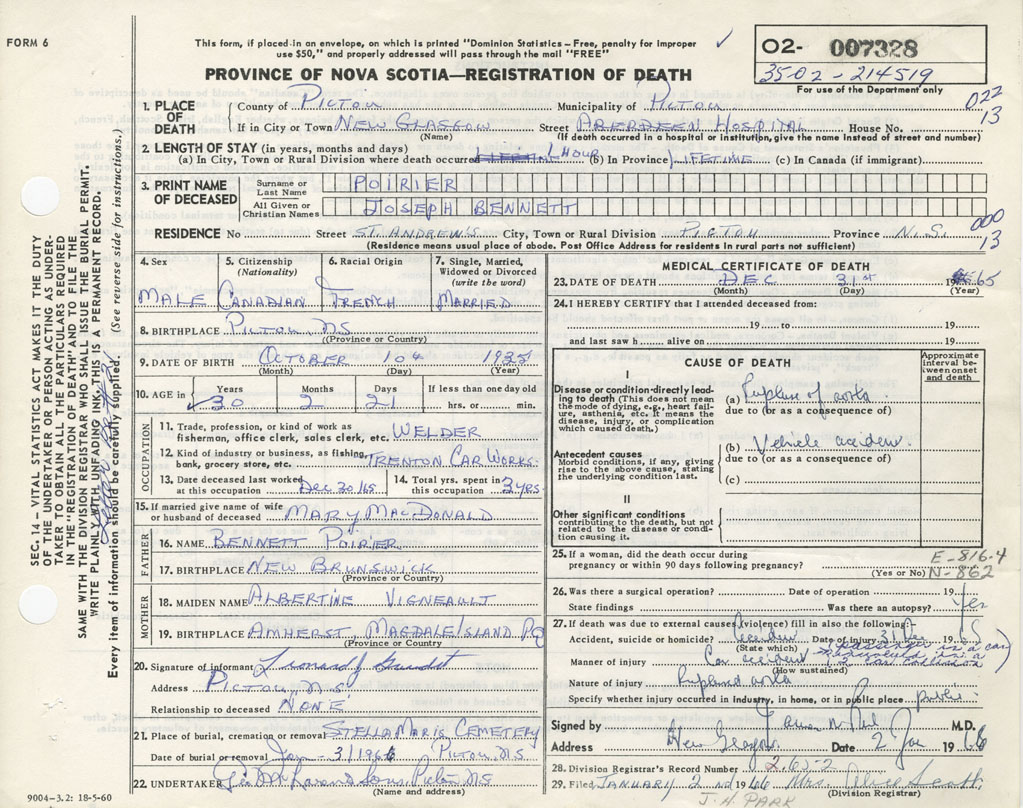 FORM 6
This form, if placed in an envelope, on which is printed "Dominion Statistics – Free, penalty for improper
use $50," and properly addressed will pass through the mail "FREE"
✓
O2- 007328
3502-214519
For use of the Department only
PROVINCE OF NOVA SCOTIA—REGISTRATION OF DEATH
022
13
1. PLACE OF DEATH
County of PICTOU Municipality of PICTOU
If in City or Town NEW GLASGOW Street ABERDEEN HOSPITAL House No.
(Name) (If death occurred in a hospital or institution, give the name instead of street and number)
2. LENGTH OF STAY (in years, months and days)
(a) In City, Town or Rural Division where death occurred 1 HOUR (b) In Province LIFETIME (c) In Canada (if immigrant)
3. PRINT NAME OF DECEASED
Surname or Last Name POIRIER
All Given or Christian Names JOSEPH BENNETT
000
13
RESIDENCE No Street ST. ANDREWS City, Town or Rural Division PICTOU Province N.S.
(Residence means usual place of abode. Post Office Address for residents in rural parts not sufficient)
SEC. 14 – VITAL STATISTICS ACT MAKES IT THE DUTY
OF THE UNDERTAKER OR PERSON ACTING AS UNDER-
TAKER TO OBTAIN ALL THE PARTICULARS REQUIRED
IN THE "REGISTRATION OF DEATH" AND TO FILE THE
SAME WITH THE DIVISION REGISTRAR WHO SHALL ISSUE THE BURIAL PERMIT.
WRITE PLAINLY WITH UNFADING INK—THIS IS A PERMANENT RECORD.
Every item of information should be carefully supplied. (See reverse side for instructions.)
4. Sex
MALE
5. Citizenship
(Nationality)
CANADIAN
6. Racial Origin
FRENCH
7. Single, Married,
Widowed or Divorced
(write the word)
MARRIED
8. BIRTHPLACE PICTOU NS
(Province or Country)
9. DATE OF BIRTH OCTOBER 10th 1935
(Month) (Day) (Year)
10. AGE in
Years Months Days If less than one day old
30 2 21 hrs. or min.
OCCUPATION
11. Trade, profession, or kind of work as
fisherman, office clerk, sales clerk, etc. WELDER
12. Kind of industry or business, as fishing,
bank, grocery store, etc. TRENTON CAR WORKS
13. Date deceased last worked
at this occupation Dec 30/65
14. Total yrs. spent in
this occupation 3 YRS.
15. If married give name of wife
or husband of deceased MARY MACDONALD
FATHER
16. NAME BENNETT POIRIER
17. BIRTHPLACE NEW BRUNSWICK
(Province or Country)
MOTHER
18. MAIDEN NAME ALBERTINE VIGNEAULT
19. BIRTHPLACE AMHERST, MAGDALE ISLAND PQ
(Province or Country)
20. Signature of informant Leonard J
Address PICTOU, NS
Relationship to deceased NONE
21. Place of burial, cremation or removal STELLA MARIS CEMETERY
Date of burial or removal Jan 3/1966 PICTOU, NS
22. UNDERTAKER Sons, Pictou NS
(Name and address)
9004-3.2: 18-5-60
MEDICAL CERTIFICATE OF DEATH
23. DATE OF DEATH DEC 31st 1965
(Month) (Day) (Year)
24. I HEREBY CERTIFY that I attended deceased from:
19 to 19
and last saw h alive on 19
CAUSE OF DEATH
Approximate
interval be-
tween onset
and death
I
Disease or condition directly lead-
ing to death (This does not mean
the mode of dying, e.g., heart fail-
ure, asthenia, etc. It means the
disease, injury, or complication
which caused death.)
(a) Rupture of aorta
due to (or as a consequence of)
Antecedent causes
Morbid conditions, if any, giving
rise to the above cause, stating
the underlying condition last.
(b) Vehicle accident.
due to (or as a consequence of)
(c)
II
Other significant conditions
contributing to the death, but not
related to the disease or condi-
tion causing it.
25. If a woman, did the death occur during
pregnancy or within 90 days following pregnancy?
(Yes or No)
E-816.4
N-862
26. Was there a surgical operation? Date of operation 19
State findings Was there an autopsy? Yes
27. If death was due to external causes (violence) fill in also the following:-
Accident, suicide or homicide? Accident Date of injury 31 Dec 1965
(State which)
(passenger in a car
involved in a
2 car collision)
Manner of injury Car accident
(How sustained)
Nature of injury Ruptured aorta
Specify whether injury occurred in industry, in home, or in public place public
Signed by M.D.
Address New Glasgow Date 2 Jan 1966
28. Division Registrar's Record Number 2652
29. Filed JANUARY 2nd 1966 Mrs Alice
(Division Registrar)
J. H. PARK